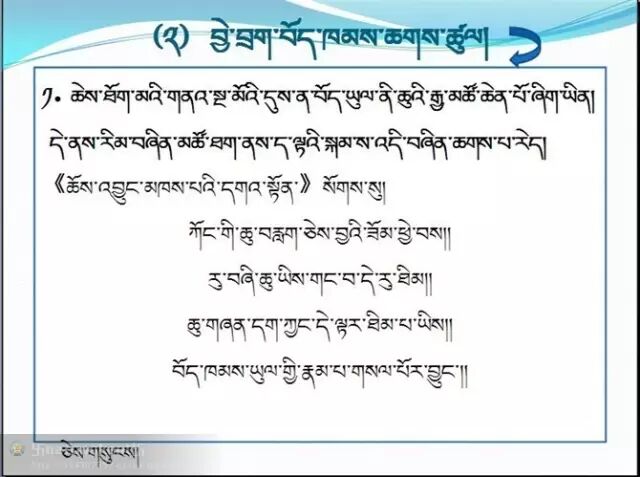 (༢) བྱེ་བྲག་བོད་ཁམས་ཆགས་ཚུལ།
༡. ཆེས་ཐོག་མའི་གནའ་སྔ་མོའི་དུས་ན་བོད་ཡུལ་ནི་ཆུའི་རྒྱ་མཚོ་ཆེན་པོ་ཞིག་ཡིན།
དེ་ནས་རིམ་བཞིན་མཚོ་ཐག་ནས་ད་ལྟའི་སྐམ་ས་འདི་བཞིན་ཆགས་པ་རེད།
《ཆོས་འབྱུང་མཁས་པའི་དགའ་སྟོན་》 སོགས་སུ།
ཀོང་གི་ཆུ་བརླག་ཅེས་བྱའི་ཟོམ་ཕྱེ་བས།།
རུ་བཞི་ཆུ་ཡིས་གང་བ་དེ་རུ་ཐིམ།།
ཆུ་གཞན་དག་ཀྱང་དེ་ལྟར་ཐིམ་པ་ཡིས།།
བོད་ཁམས་ཡུལ་གྱི་རྣམ་པ་གསལ་པོར་བྱུང་།།
ཅེས་གསུངས།